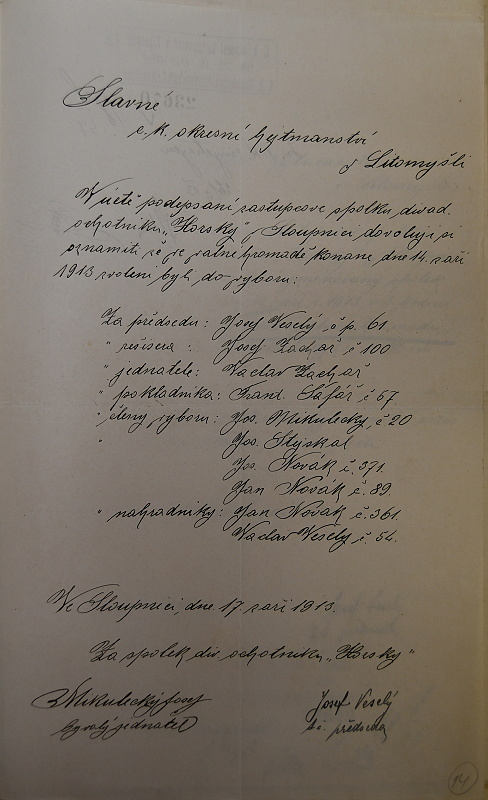 Slavné
c. k. okresní hejtmanství
v Litomyšli
V úctě podepsaní zástupcové spolku divad.
ochotníků „Horský" v Sloupnici dovolují si
oznámiti, že ve valné hromadě konané dne 14. září
1913 zvoleni byli do výboru:
Za předsedu: Josef Veselý č p. 61
" režiséra: Josef Zachař č 100
" jednatele: Václav Zachař
" pokladníka: Frant. Šafář č 67
" členy výboru: Jos. Mikulecký č 20
" Jos. Stýskal
Jos. Novák č. 371.
Jan Novák č. 89.
" náhradníky: Jan Novák č. 361.
Václav Veselý č. 54.
Ve Sloupnici, dne 17. září 1913.
Za spolek div. ochotníků „Horský"
Mikulecký Josef Josef Veselý
bývalý jednatel předseda
14